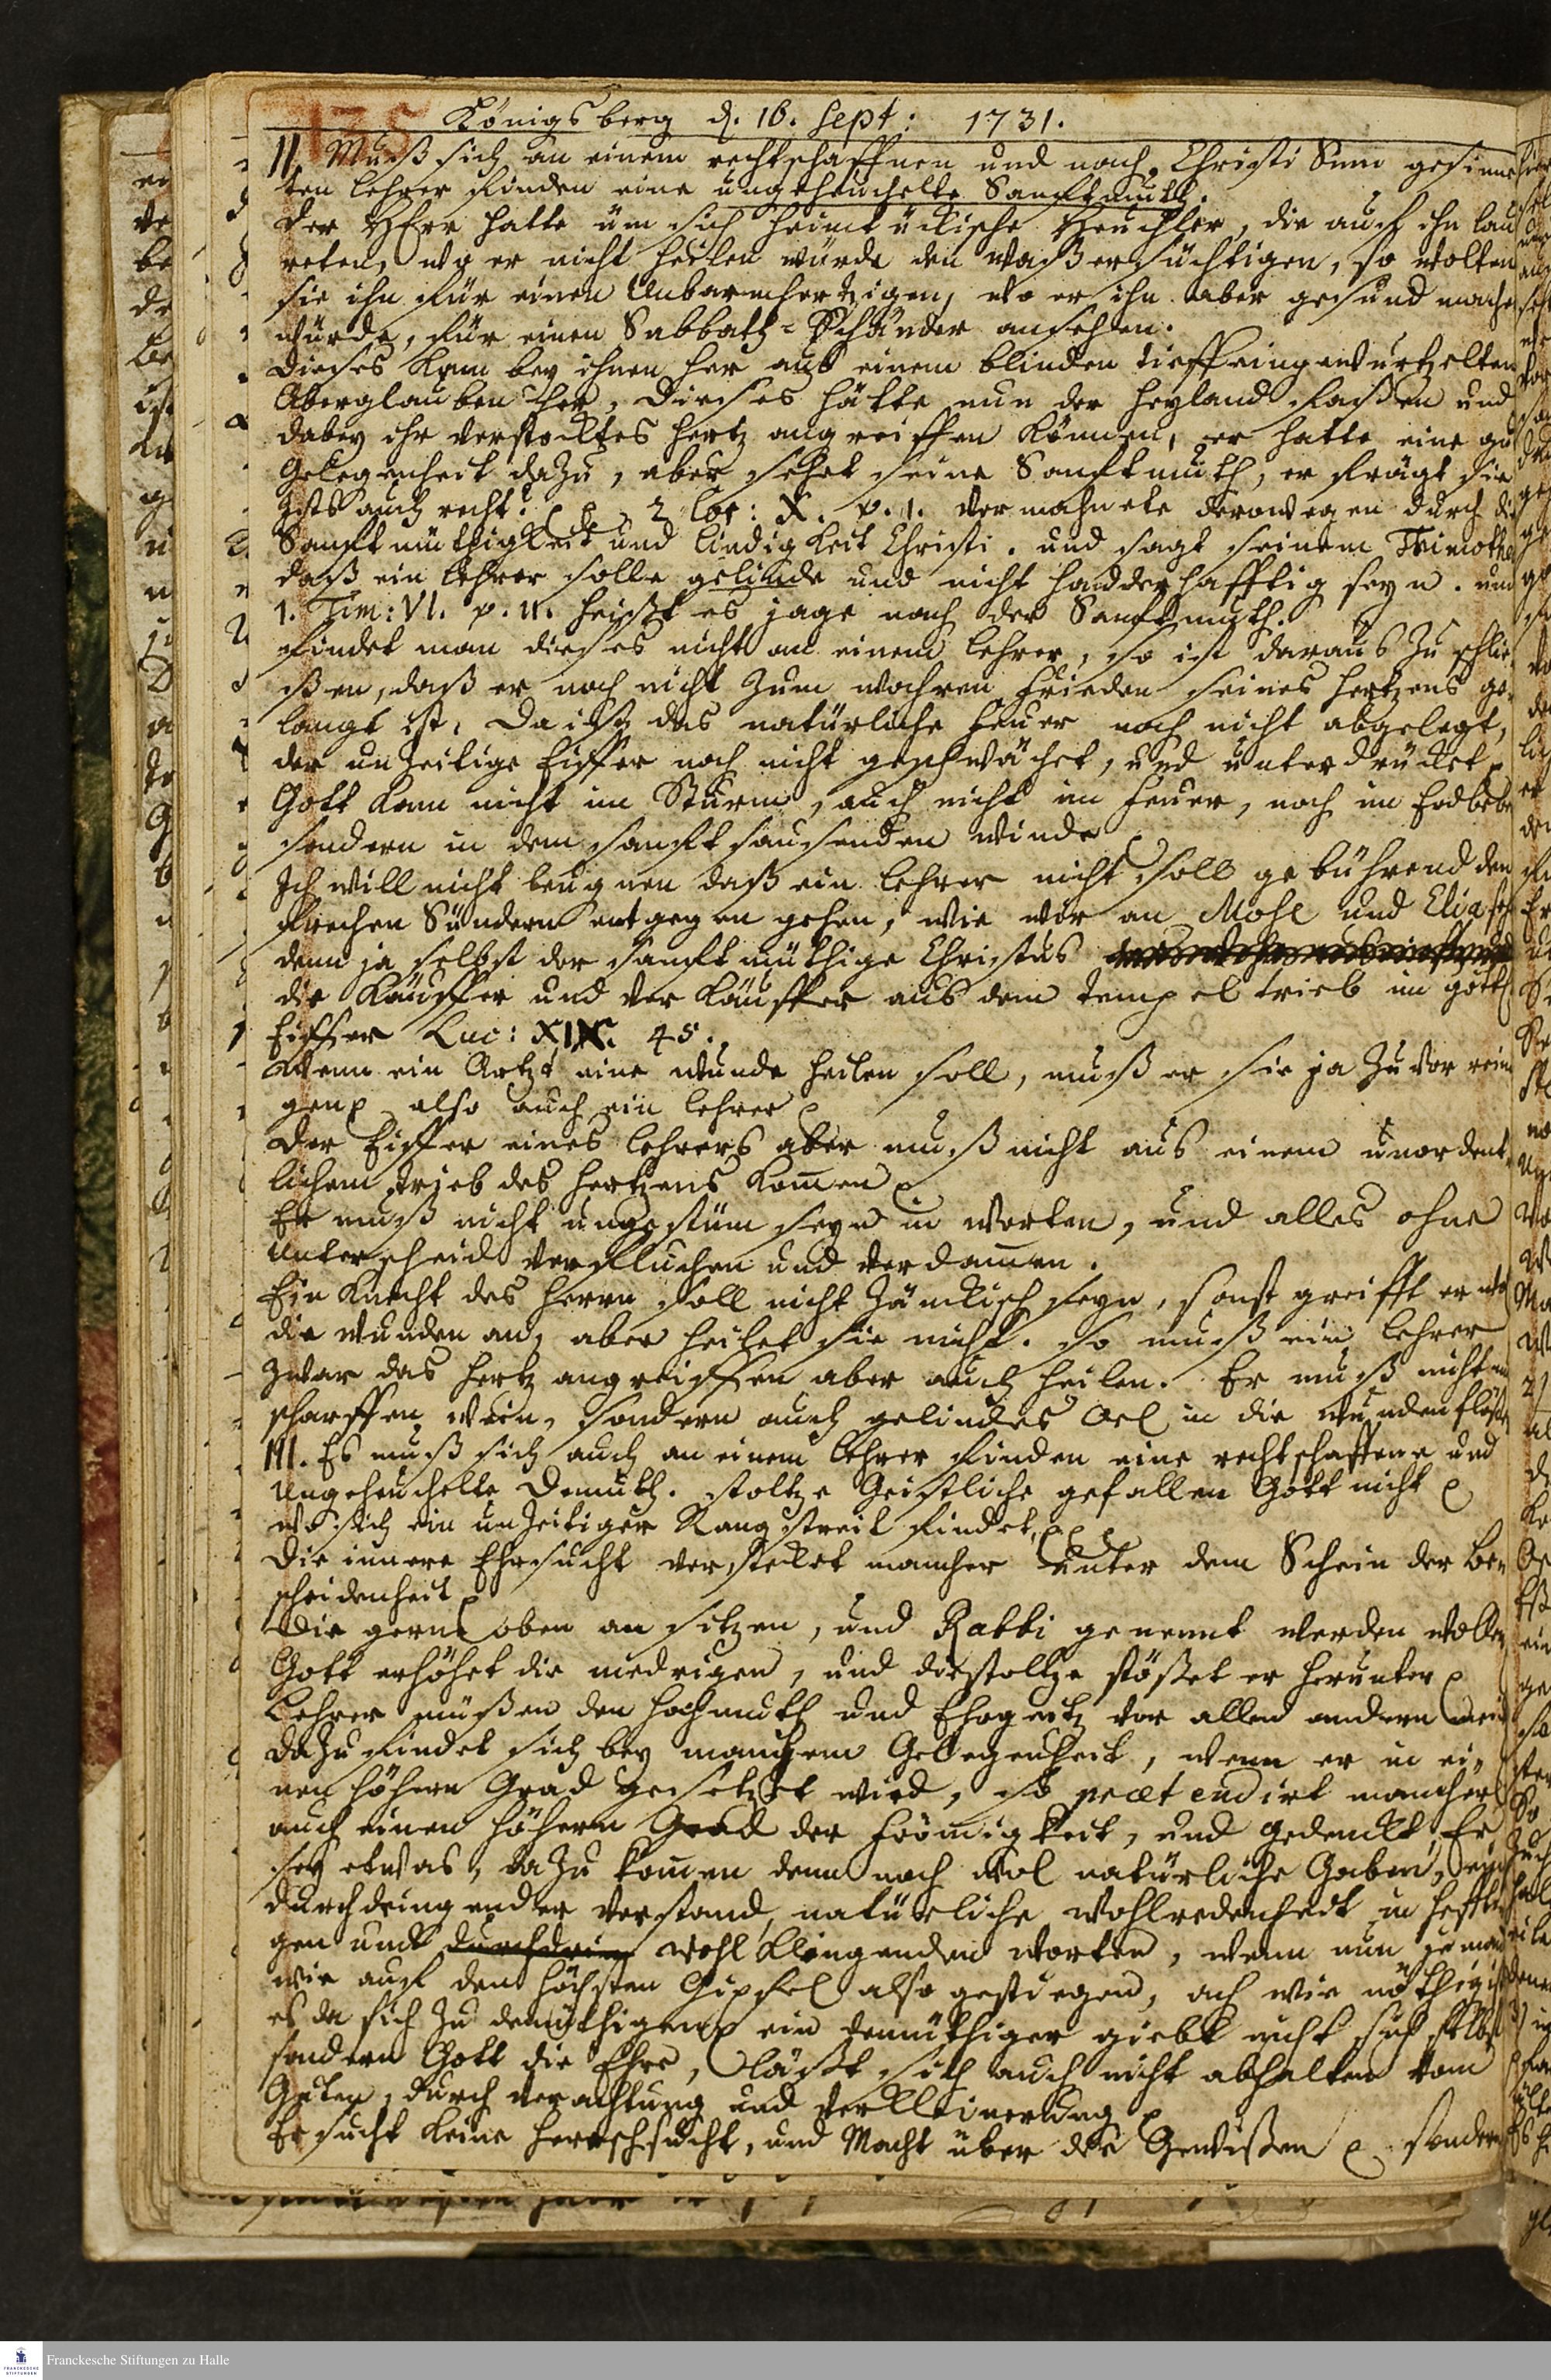 135
Königsberg d. 16. Sept: 1731.
II. Muß sich an einem rechtschaffnen und nach Christi Sinn gesinne
ten Lehrer finden eine ungeheuchelte Sanftmuth.
Der HErr hatte üm sich heimtückische Heuchler, die auf ihn lau
reten, wo er nicht heilen würde den Waßersüchtigen, so wolten
sie ihn für einen Unbarmhertzigen, wo er ihn aber gesund mache
würde, für einen Sabbath-Schänder ansehen.
Dieses kam bey ihnen her aus einem blinden tieffeingewurtzelten
Aberglauben her, Dieses hätte nun der Heyland faßen und
dabey ihr verstocktes Hertz angreiffen können, er hatte eine gu
Gelegenheit dazu, aber sehet seine Sanftmuth, er frägt sie
Ists auch recht? 2 Cor: X. v. 1. vermahnete derowegen durch die
Sanftmüthigkeit und Lindigkeit Christi. und sagt seinem Thimothe
daß ein Lehrer solle gelinde und nicht hadderhafftig seyn. und
1. Tim: VI. v. 11. heißt es jage nach der Sanftmuth.
Findet man dieses nicht an einem Lehrer, so ist daraus zu schlie
ßen, daß er noch nicht zum wahren Frieden seines Hertzens ge
langt ist, Da ist das natürliche Feuer noch nicht abgelegt,
der unzeitige Eiffer noch nicht geschwächet, und unterdrücket
Gott kam nicht im Sturm, auch nicht im Feuer, noch im Erdbebe
sondern in dem sanft sausenden Winde
Ich will nicht leugnen daß ein Lehrer nicht soll gebührend den
frechen Sündern entgegen gehen, wie wir an Mose und Elia seh
denn ja selbst der sanftmüthige Christus
die Käuffer und Verkäuffer aus dem Tempel trieb im göttl
Eiffer Luc: XIX. 45.
Wenn ein Artzt eine Wunde heilen soll, muß er sie ja zuvor rein
gen also auch ein Lehrer
Der Eiffer eines Lehrers aber muß nicht aus einem unordent
lichem Trieb des Hertzens kom̄en
Er muß nicht ungestüm seyn in Worten, und alles ohne
Unterscheid verfluchen und verdam̄en.
Ein Knecht des Herrn soll nicht zänckisch seyn, sonst greifft er wol
die Wunden an, aber heilet sie nicht. So muß ein Lehrer
zwar das Hertz angreiffen aber auch heilen. Er muß nicht nu
scharffen Wein, sondern auch gelindes Oel in die Wunden flöße
III. Es muß sich auch an einem Lehrer finden eine rechtschaffene und
Ungeheuchelte Demuth. Stoltze Geistliche gefallen Gott nicht
wo sich ein unzeitiger Rangstreit findet,
Die innere Ehrsucht verstecket mancher unter dem Schein der Be
scheidenheit
Die gerne oben an sitzen, und Rabbi genennt werden wollen
Gott erhöhet die niedrigen, und die stoltze stößet er herunter
Lehrer müßen den Hochmuth und Ehrgeitz vor allen andern
Dazu findet sich bey manchem Gelegenheit, wenn er in ei
nen höhern Grad gesetzet wird, so prætendirt mancher
auch einen höhern Grad der From̄igkeit, und gedenckt, Er
sey etwas, dazu kom̄en denn noch wol natürliche Gaben, ein
durchdringender Verstand, natürliche Wohlredenheit in hefftig
gen und durchdring wohlklingenden Worten, wenn nun jeman
wie auf den höchsten Gipfel also gestiegen, ach wie nöthig ist
es da sich zu demüthigen ein demüthiger giebt nicht sich selbst
sondern Gott die Ehre, läßt sich auch nicht abhalten vom
Guten, durch Verachtung und Verkleinerung
Er sucht keine Herrschsucht, und Macht über die Gewißen sondern
Franckesche Stiftungen zu Halle